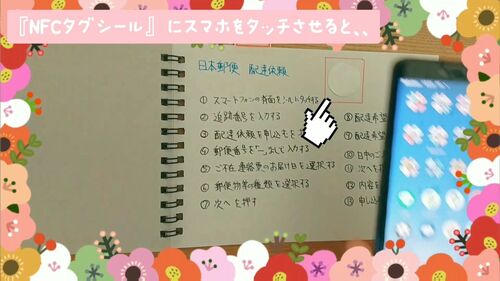 『NFCタグシール』にスマホをタッチさせると、、
日本郵便 配達依頼
① スマートフォンの背面をシールにタッチする
② 追跡番号を入力する
③ 配達依頼を申し込む
④ 郵便番号を"-"なしで入力する
⑤ ご不在連絡票のお届け日を選択する
⑥ 郵便物等の種類を選択する
⑦ 次へを押す
⑧ 配達希望
⑨ 配達希望
⑩ 日中のご
⑪ 次へを
⑫ 内容を
⑬ 申し込